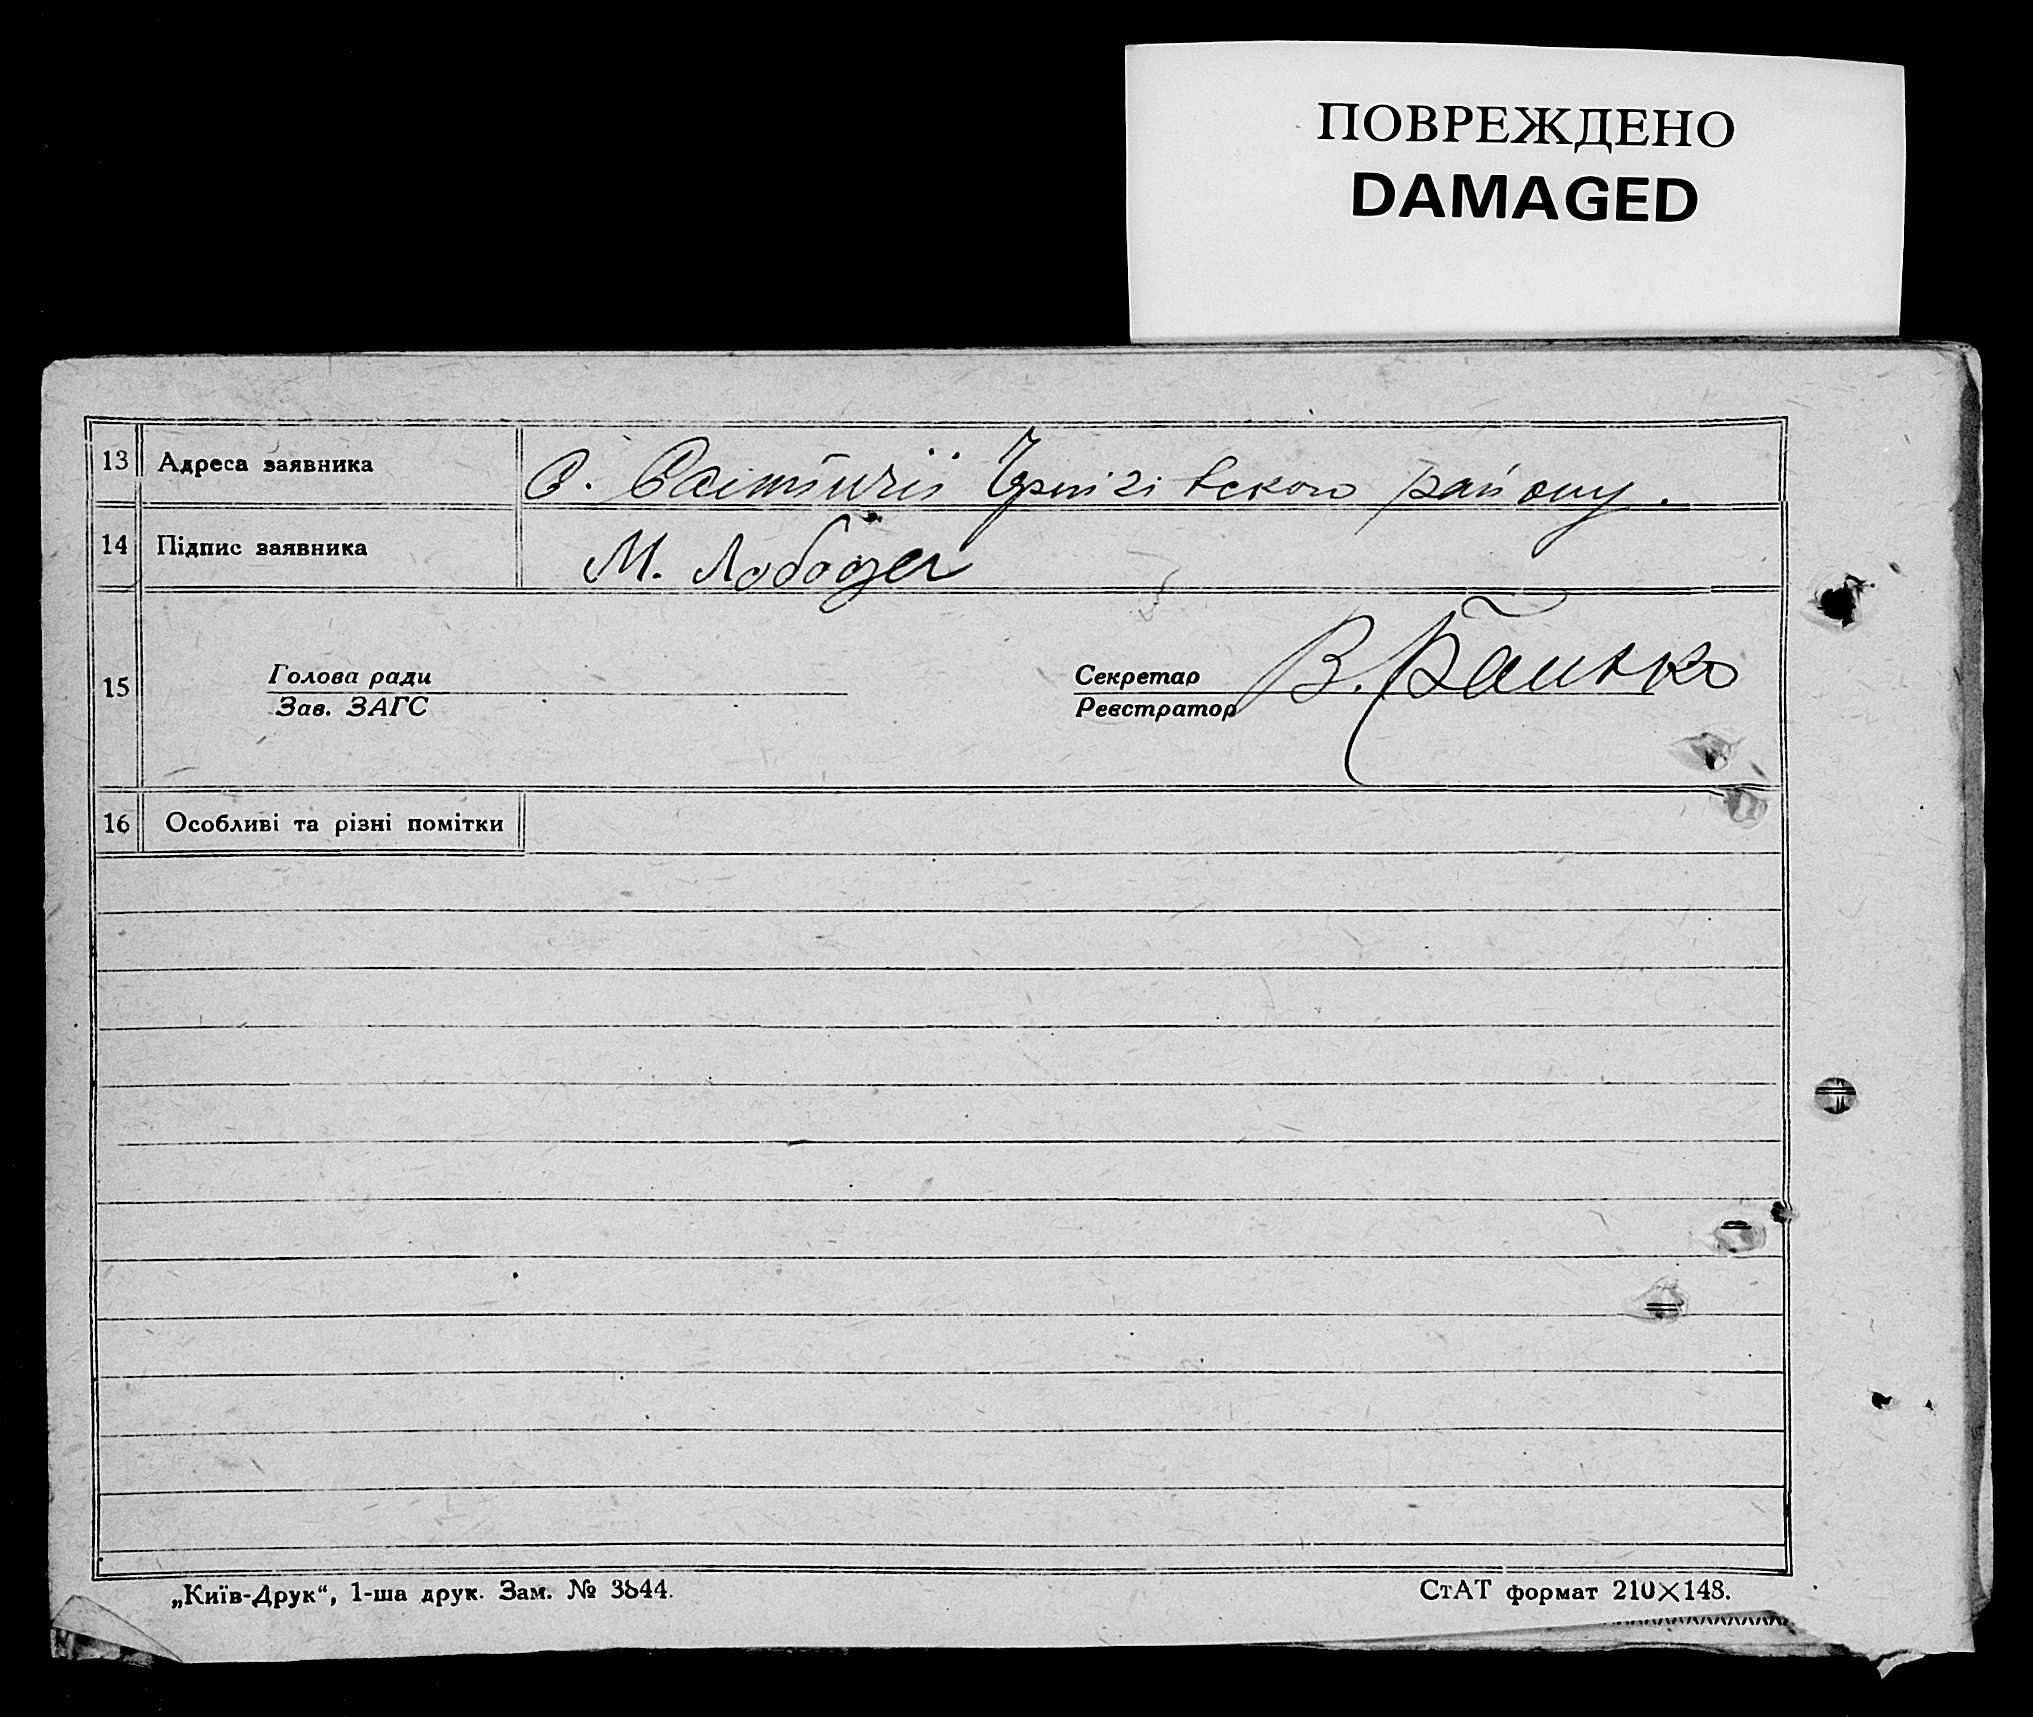 ПОВРЕЖДЕНО
DAMAGED
13 Адреса заявника С. Чернігівського району.
14 Підпис заявника М. Лобода
15 Голова ради Секретар В. Банько
Зав. ЗАГС Реєстратор
16 Особливі та різні помітки
„Київ-Друк“, 1-ша друк. Зам. № 3844. СтАТ формат 210×148.